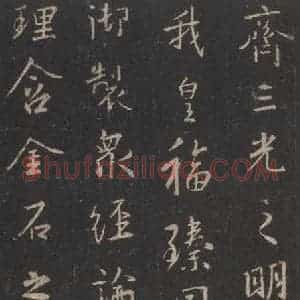 齊三光之明
我皇福臻同
御製眾經論
理含金石之
Shufaziliao.COM